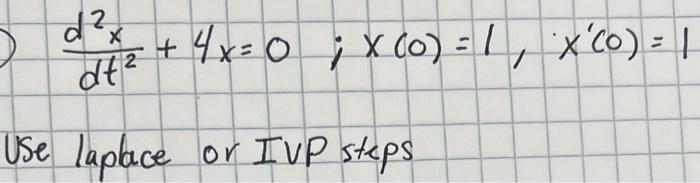 ) d²x/dt² + 4x = 0 ; x(0) = 1, x'(0) = 1
Use laplace or IVP steps